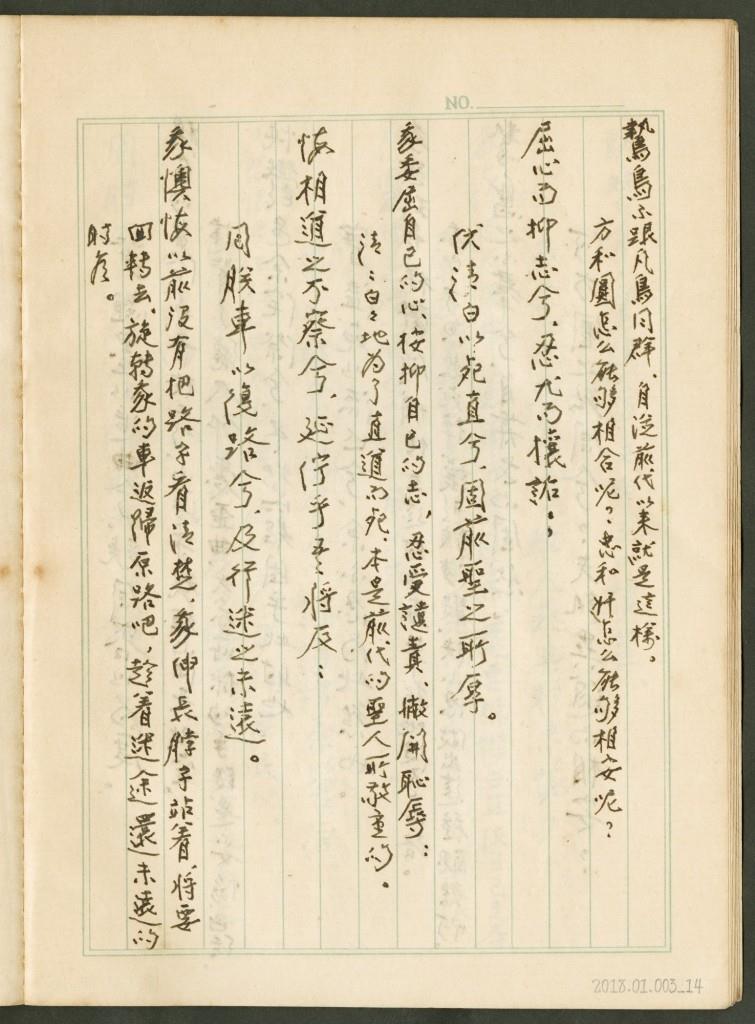 NO.
鷙鳥不跟凡鳥同群、自從前代以來就是這様。
方和圓怎么能够相合呢？忠和奸怎么能够相安呢？
屈心而抑志兮、忍尤而攘詬。
伏清白以死直兮、固前聖之所厚。
我委屈自己的心、按抑自己的志，忍受譴責、撇開恥辱：
清清白白地为了直道而死、本是前代的聖人所敬重的。
悔相道之不察兮、延佇乎吾將反：
回朕車以復路兮、及行迷之未遠。
我懊悔以前没有把路子看清楚、我伸長脖子站着、将要
回轉去、旋轉我的車返歸原路吧，趁着迷途還未遠的
時候。
2018.01.003_14